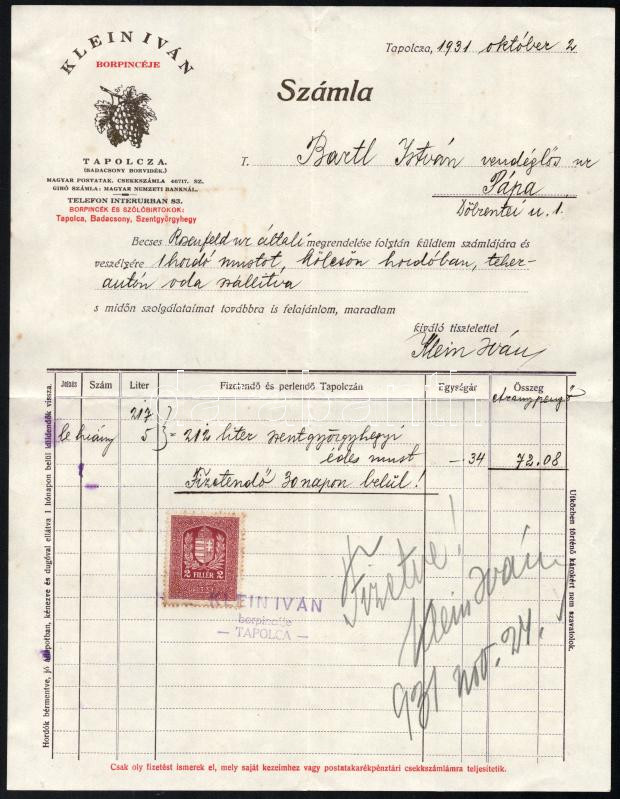 KLEIN IVÁN
BORPINCÉJE
TAPOLCZA.
(BADACSONY BORVIDÉK.)
MAGYAR POSTATAK. CSEKKSZÁMLA 46717. SZ.
GIRÓ SZÁMLA: MAGYAR NEMZETI BANKNÁL.
TELEFON INTERURBAN 83.
BORPINCÉK ÉS SZŐLŐBIRTOKOK:
Tapolca, Badacsony, Szentgyörgyhegy
Tapolcza, 1931 október 2
Számla
T. Bartl István vendéglős ur
Pápa
Döbrentei u. 1.
Becses Rosenfeld ur általi megrendelése folytán küldtem számldájára és
veszélyére 1 hordó mustot, kölcsön hordóban, teher-
autón oda szállitva
s midőn szolgálataimat továbbra is felajánlom, maradtam
kiváló tisztelettel
Klein Iván
Jelzés Szám Liter Fizetendő és perlendő Tapolczán Egységár Összeg
Aranypengő
217
le hiány 5 = 212 liter szentgyörgyhegyi
édes must —.34 72.08
Fizetendő 30 napon belül!
2 FILLÉR 2
KLEIN IVÁN
borpincéje
— TAPOLCA —
Fizetve!
Klein Iván
931 nov. 24.
Hordók bérmentve, jó állapotban, kénezve és dugóval ellátva 1 hónapon belül küldendők vissza.
Utközben történő károkért nem szavatolok.
Csak oly fizetést ismerek el, mely saját kezeimhez vagy postatakarékpénztári csekkszámlámra teljesitetik.